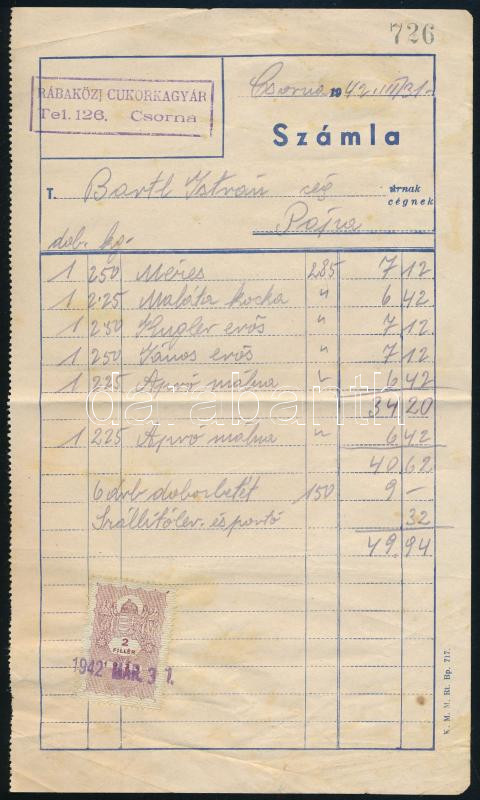 726
RÁBAKÖZI CUKORKAGYÁR
Tel. 126. Csorna
Csorna 1942. III/31.
Számla
T. Bartl István cég úrnak cégnek
Pájra
dob. kg.
1 2.50 Mézes 2.85 7 12
1 2.25 Maláta kocka " 6 42
1 2.50 Kugler erős " 7 12
1 2.50 János erős " 7 12
1 2.25 Apró málna " 6 42
34 20
1 2.25 Apró málna " 6 42
40 62
6 drb dobozbetét 1.50 9 –
Szállítólev. és portó 32
49.94
darabanth
2
FILLÉR
1942 MÁR. 31.
K. M. M. Rt. Bp. 717.